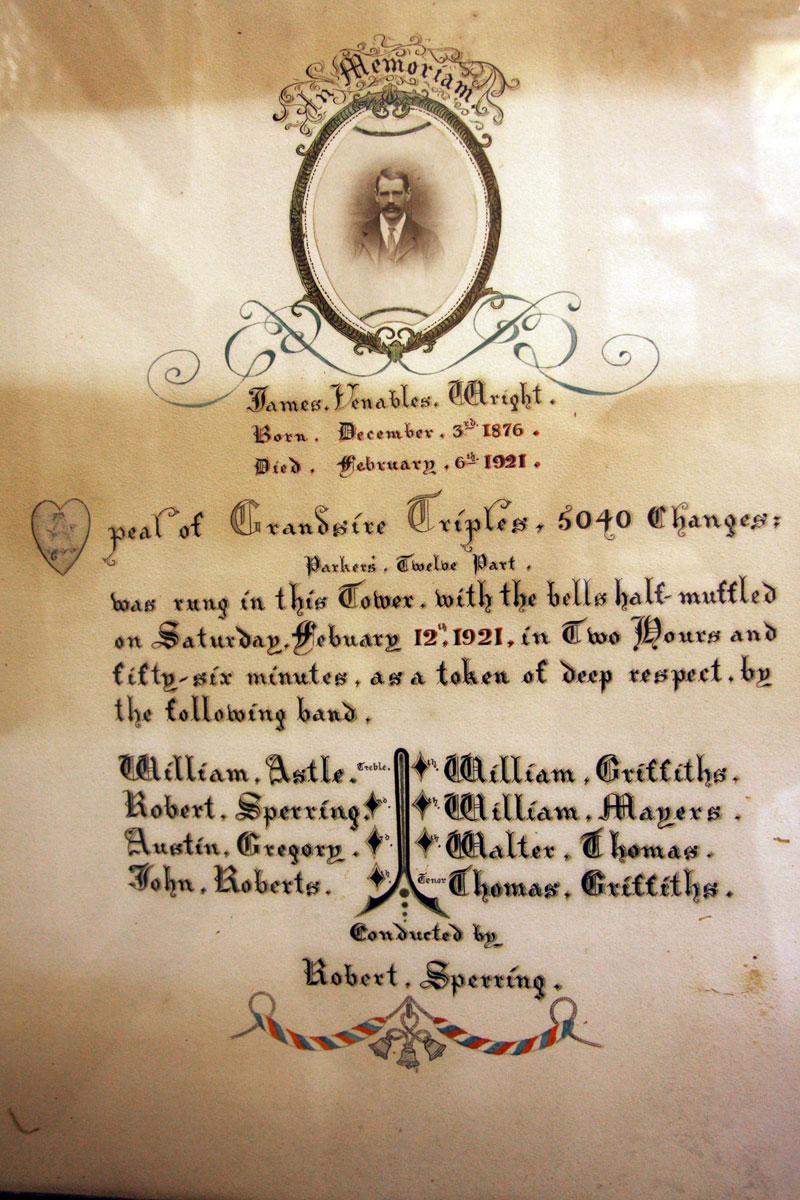 In Memoriam
James. Venables. Wright.
Born. December. 3rd 1876.
Died. February. 6th 1921.
A peal of Grandsire Triples, 5040 Changes:
Parkers'. Twelve Part.
was rung in this Tower. with the bells half-muffled
on Saturday, Febuary 12th, 1921, in Two Hours and
fifty-six minutes, as a token of deep respect, by
the following band.
William. Astle. Treble.
Robert. Sperring.
Austin. Gregory.
John. Roberts.
William. Griffiths.
William. Mayers.
Walter. Thomas.
Tenor Thomas. Griffiths.
Conducted by
Robert. Sperring.